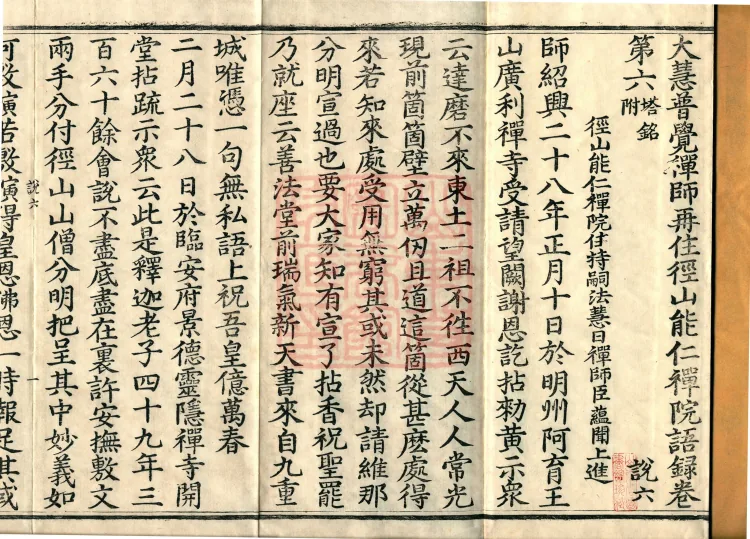 大慧普覺禪師再住徑山能仁禪院語録卷
第六 塔銘附 説六
徑山能仁禪院住持嗣法慧日禪師臣蘊聞上進
師紹興二十八年正月十日於明州阿育王
山廣利禪寺受請望闕謝恩訖拈勑黄示衆
云達磨不來東土二祖不徃西天人人常光
現前箇箇壁立萬仞且道這箇從甚麽處得
來若知來處受用無窮其或未然却請維那
分明宣過也要大家知有宣了拈香祝聖罷
乃就座云善法堂前瑞氣新天書來自九重
城唯憑一句無私語上祝吾皇億萬春
二月二十八日於臨安府景德靈隱禪寺開
堂拈疏示衆云此是釋迦老子四十九年三
百六十餘會説不盡底盡在裏許安撫敷文
兩手分付徑山山僧分明把呈其中妙義如
説六 一
何敷演若敷演得皇恩佛恩一時報足其或